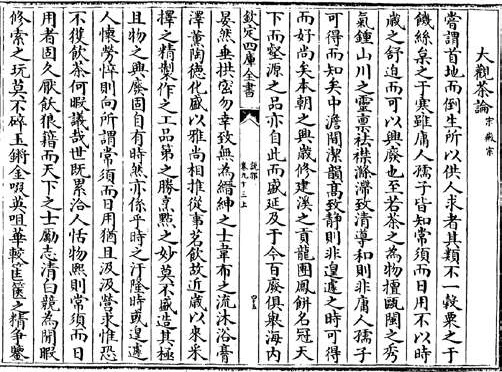 大觀茶論 宋徽宗
嘗謂首地而倒生所以供人求者其類不一穀粟之于
饑絲枲之于寒雖庸人孺子皆知常須而日用不以時
歳之舒迫而可以興廢也至若茶之為物擅甌閩之秀
氣鍾山川之靈禀祛襟滌滯致清導和則非庸人孺子
可得而知矣中澹閒潔韻高致静則非遑遽之時可得
而好尚矣本朝之興歳修建溪之貢龍團鳳餅名冠天
下而壑源之品亦自此而盛延及于今百廢俱舉海内
欽定四庫全書
説郛
卷九十三上
晏然垂拱宻勿幸致無為縉紳之士韋布之流沐浴膏
澤薰陶徳化盛以雅尚相推從事茗飲故近歳以來采
擇之精製作之工品第之勝烹點之妙莫不盛造其極
且物之興廢固自有時然亦係乎時之汙隆時或遑遽
人懐勞悴則向所謂常須而日用猶且汲汲營求惟恐
不獲飲茶何暇議哉世既累洽人恬物熙則常須而日
用者固久厭飫狼籍而天下之士勵志清白競為閒暇
修索之玩莫不碎玉鏘金啜英咀華較筐篋之精爭鑒